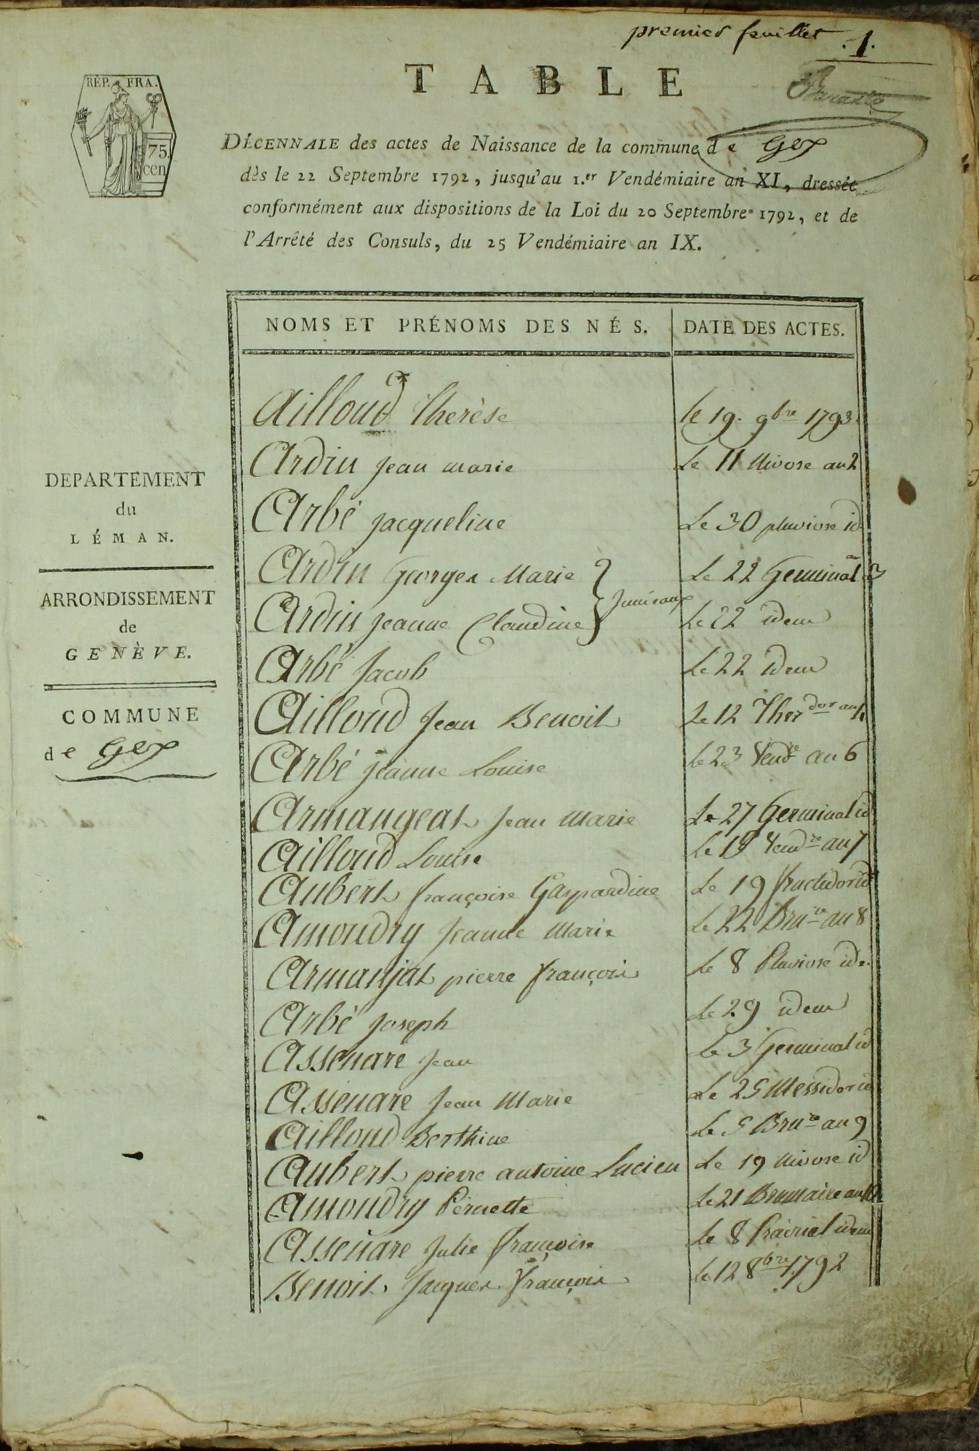 premier feuillet .1.
RÉP. FRA.
75
cen
TABLE
DÉCENNALE des actes de Naissance de la commune de Gex
dès le 22 Septembre 1792, jusqu'au 1.er Vendémiaire an XI, dressée
conformément aux dispositions de la Loi du 20 Septembre 1792, et de
l'Arrêté des Consuls, du 25 Vendémiaire an IX.
DEPARTEMENT
du
LÉMAN.
ARRONDISSEMENT
de
GENÈVE.
COMMUNE
de Gex
NOMS ET PRÉNOMS DES NÉS. DATE DES ACTES.
Ailloud Therèse le 19. 9bre 1793.
Ardin Jean marie Le 11 Nivose an 2
Arbé Jacqueline Le 30 pluviose id
Ardin Georges Marie Le 22 Germinal 3
Ardin Jeanne Claudine Jumeaux Le 22 idem
Arbé Jacob Le 22 idem
Ailloud Jean Benoit Le 12 Therdor an
Arbé jeanne Louise le 23 Vendre an 6
Armangeat Jean Marie Le 27 Germinal id
Ailloud Louise Le 19 Vendre an 7
Aubert françoise Gaspardine Le 19 fructidor id
Amoudry Jeanne Marie le 22 Brure an 8
Armanjat pierre françois le 8 Pluviose id.
Arbé Joseph Le 29 idem
Assenare Jean Le 3 Germinal id
Assenare Jean Marie Le 25 Messidor id
Ailloud Berthine Le 5 Brure an 9
Aubert pierre antoine Lucien Le 19 Nivose id
Amoudry Pernette Le 21 Brumaire an 10
Assenare Julie françoise Le 8 Prairial idem
Benoit Jacques françois le 12 8bre 1792